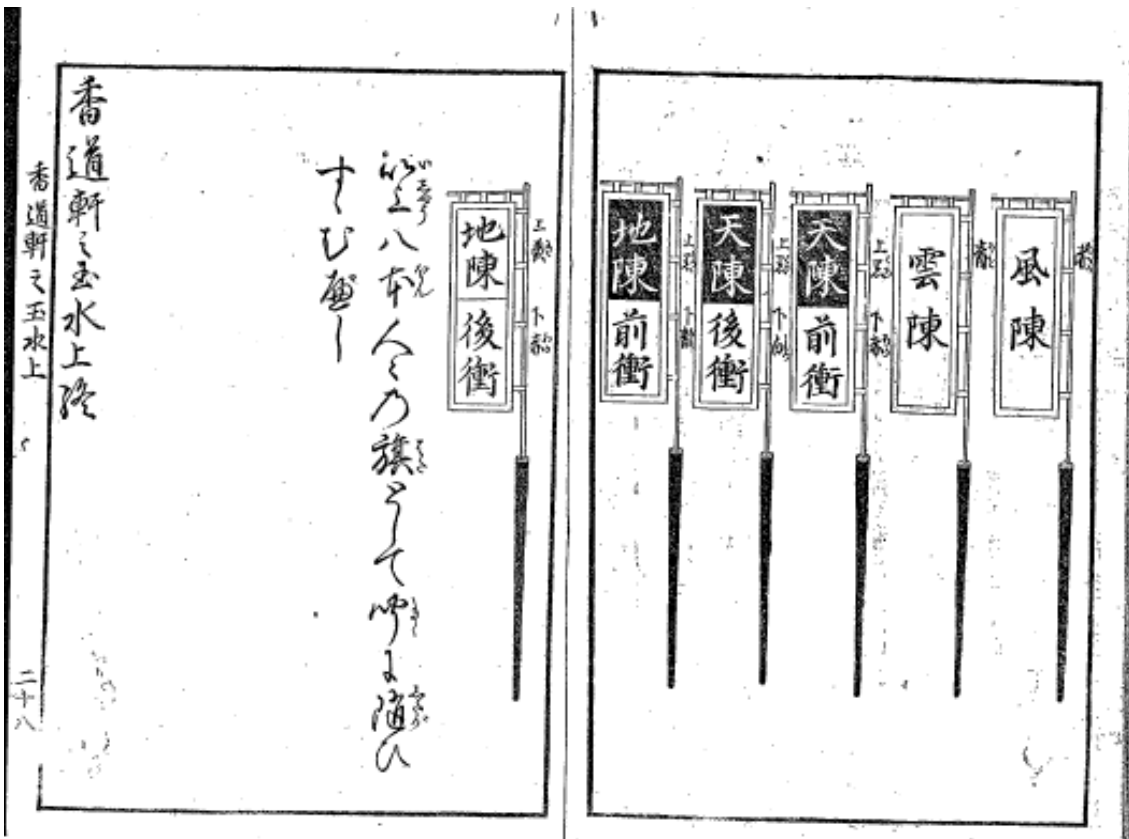 風陳
雲陳
天陳前衝
天陳後衝
地陳前衝
地陳後衝
以上八本人々の旗として聞に随ひ
すゝむべし
香道軒之玉水上終
香道軒之玉水上
二十八